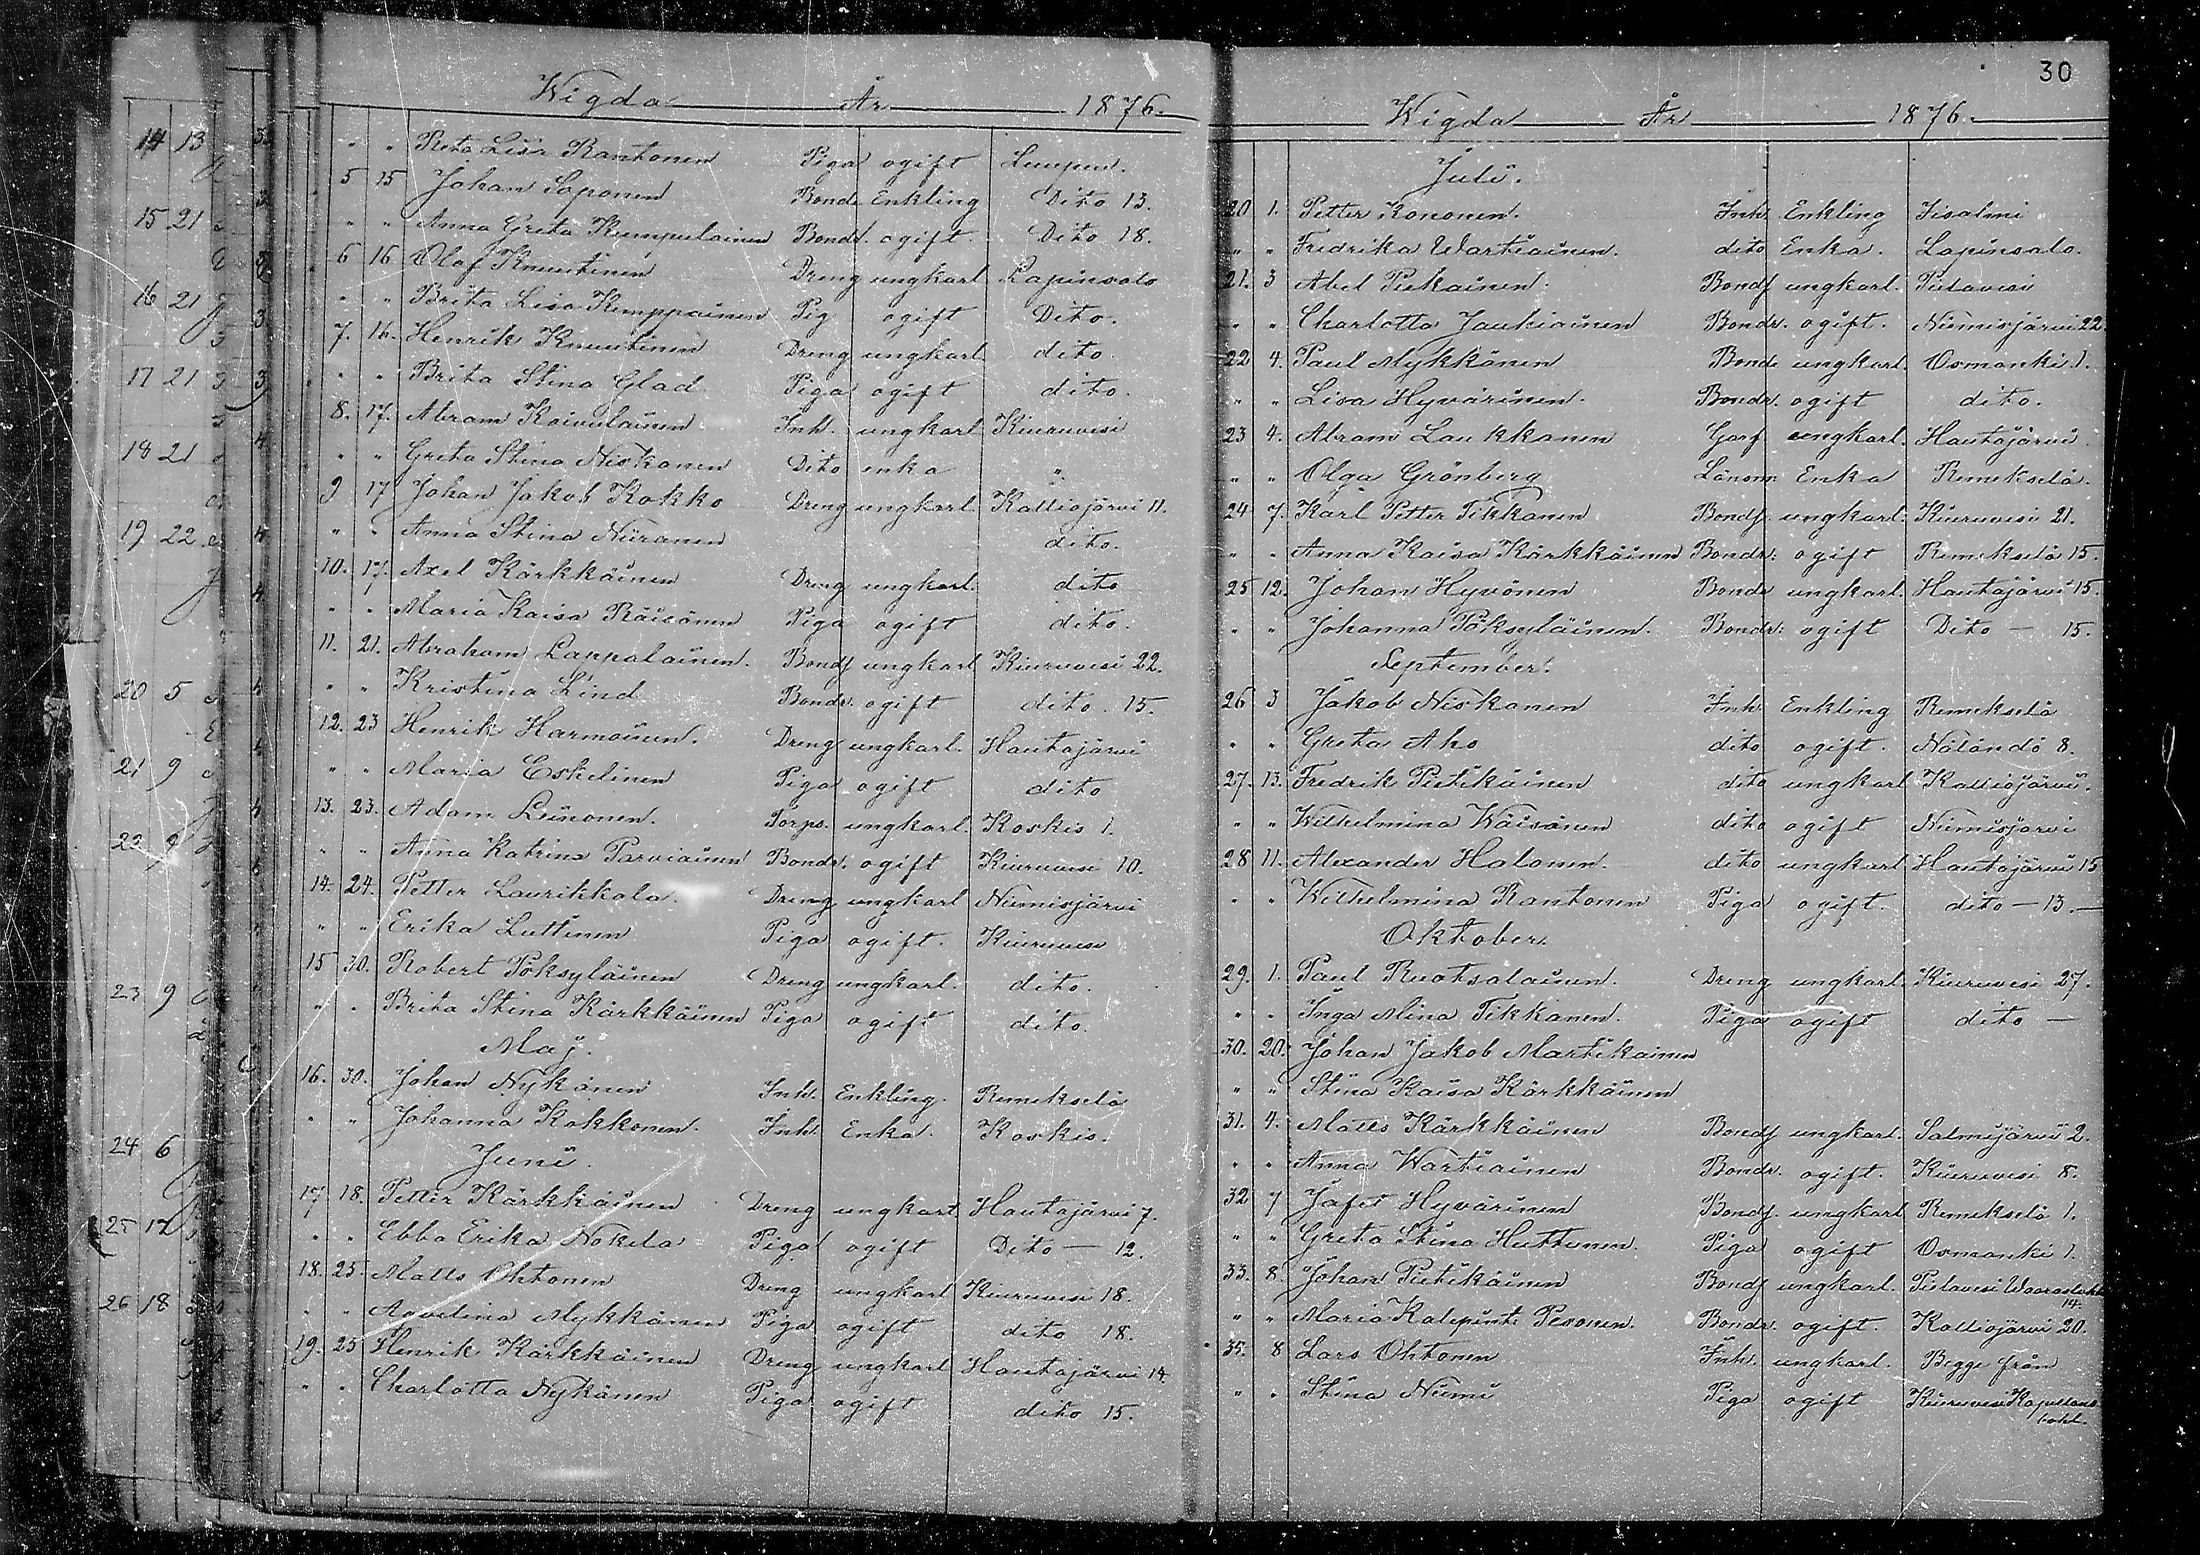 Wigda År 1876.
" " Reta Lisa Rantonen Piga ogift Luupu.
5 15 Johan Soponen Bonde Enkling Dito 13.
" " Anna Greta Kumpulainen Bondr. ogift. Dito 18.
6 16 Olof Knuutinen Dreng ungkarl Lapinsalo
" " Brita Lisa Kemppainen Pig ogift Dito.
7. 16. Henrik Knuutinen Dreng ungkarl dito
" " Brita Stina Glad Piga ogift dito.
8. 17. Abram Koivulainen Inh. ungkarl Kiuruvesi
" " Greta Stina Niskanen Dito enka "
9 17 Johan Jakob Kokko Dreng ungkarl Kalliojärvi 11.
" " Anna Stina Niiranen dito.
10. 17. Axel Kärkkäinen Dreng ungkarl. dito
" " Maria Kaisa Räisänen Piga ogift dito.
11. 21. Abraham Lappalainen. Bondf ungkarl Kiuruvesi 22.
" " Kristina Lind Bondr. ogift dito 15.
12. 23 Henrik Harmainen. Dreng ungkarl. Hautajärvi
" " Maria Eskelinen Piga ogift dito
13. 23. Adam Leinonen. Torps. ungkarl. Koskis 1.
" " Anna Katrina Parviainen Bondr. ogift Kiuruvesi 10.
14. 24. Petter Laurikkala. Dreng ungkarl Niemisjärvi
" " Erika Luttinen Piga ogift. Kiuruvesi
15 30. Robert Pöksyläinen Dreng ungkarl. dito.
" " Brita Stina Kärkkäinen Piga ogift dito.
Maj.
16. 30. Johan Nykänen Inh. Enkling. Remekselä
" " Johanna Kokkonen. Inh. Enka. Koskis.
Juni.
17 18. Petter Kärkkäinen Dreng ungkarl Hautajärvi 7.
" " Ebba Erika Nokela Piga ogift Dito — 12.
18. 25. Matts Ohtonen Dreng ungkarl Kiuruvesi 18.
" " Aquilina Mykkänen Piga ogift dito 18.
19. 25 Henrik Kärkkäinen Dreng ungkarl Hautajärvi 14.
" " Charlotta Nykänen Piga ogift dito 15.
30
Wigda År 1876.
Juli.
20 1. Petter Kononen. Inh. Enkling Iisalmi
" " Fredrika Wartiainen. dito Enka. Lapinsalo.
21. 3 Abel Piekäinen. Bondf ungkarl. Pielavesi
" " Charlotta Jauhiainen Bondr. ogift. Niemisjärvi 22.
22 4. Paul Mykkänen Bonde ungkarl. Osmanki 1.
" " Lisa Hyvärinen. Bondr. ogift dito.
23 4. Abram Laukkanen Garf. ungkarl. Hautajärvi
" " Olga Grönberg Länsm. Enka Remekselä.
24 7. Karl Petter Tikkanen Bondf. ungkarl. Kiuruvesi 21.
" " Anna Kaisa Kärkkäinen Bondr. ogift Remekselä 15.
25 12. Johan Hyvönen Bonde ungkarl. Hautajärvi 15.
" " Johanna Pöksyläinen. Bondr. ogift Dito — 15.
September.
26 3 Jakob Niskanen Inh. Enkling Remekselä
" " Greta Aho dito ogift. Näläntö 8.
27. 13. Fredrik Pietikäinen dito ungkarl Kalliojärvi.
" " Wilhelmina Wäisänen dito ogift Niemisjärvi
28 11. Alexander Halonen. dito ungkarl Hautajärvi 15
" " Wilhelmina Rantonen Piga ogift. dito — 13. —
Oktober.
29. 1. Paul Ruotsalainen. Dreng ungkarl. Kiuruvesi 27.
" " Inga Alina Tikkanen. Piga ogift dito —
30. 20. Johan Jakob Martikainen
" " Stina Kaisa Kärkkäinen
31. 4. Matts Kärkkäinen Bondf ungkarl. Salmijärvi 2.
" " Anna Wartiainen Bondr. ogift. Kiuruvesi 8.
32 7 Jafet Hyvärinen Bondf. ungkarl Remekselä 1.
" " Greta Stina Huttunen. Piga ogift Osmanki 1.
33. 8. Johan Pietikäinen Bondf ungkarl. Pielavesi
14.
" " Maria Pesonen. Bondr. ogift. Kalliojärvi 20.
35. 8 Lars Ohtonen Inh. ungkarl. Begge från
" " Stina Niemi Piga ogift Kiuruvesi Kapellans
bohl.
14 13
15 21
16 21
17 21
18 21
19 22
20 5
21 9
22 9
23 9
24 6
25 17
26 18